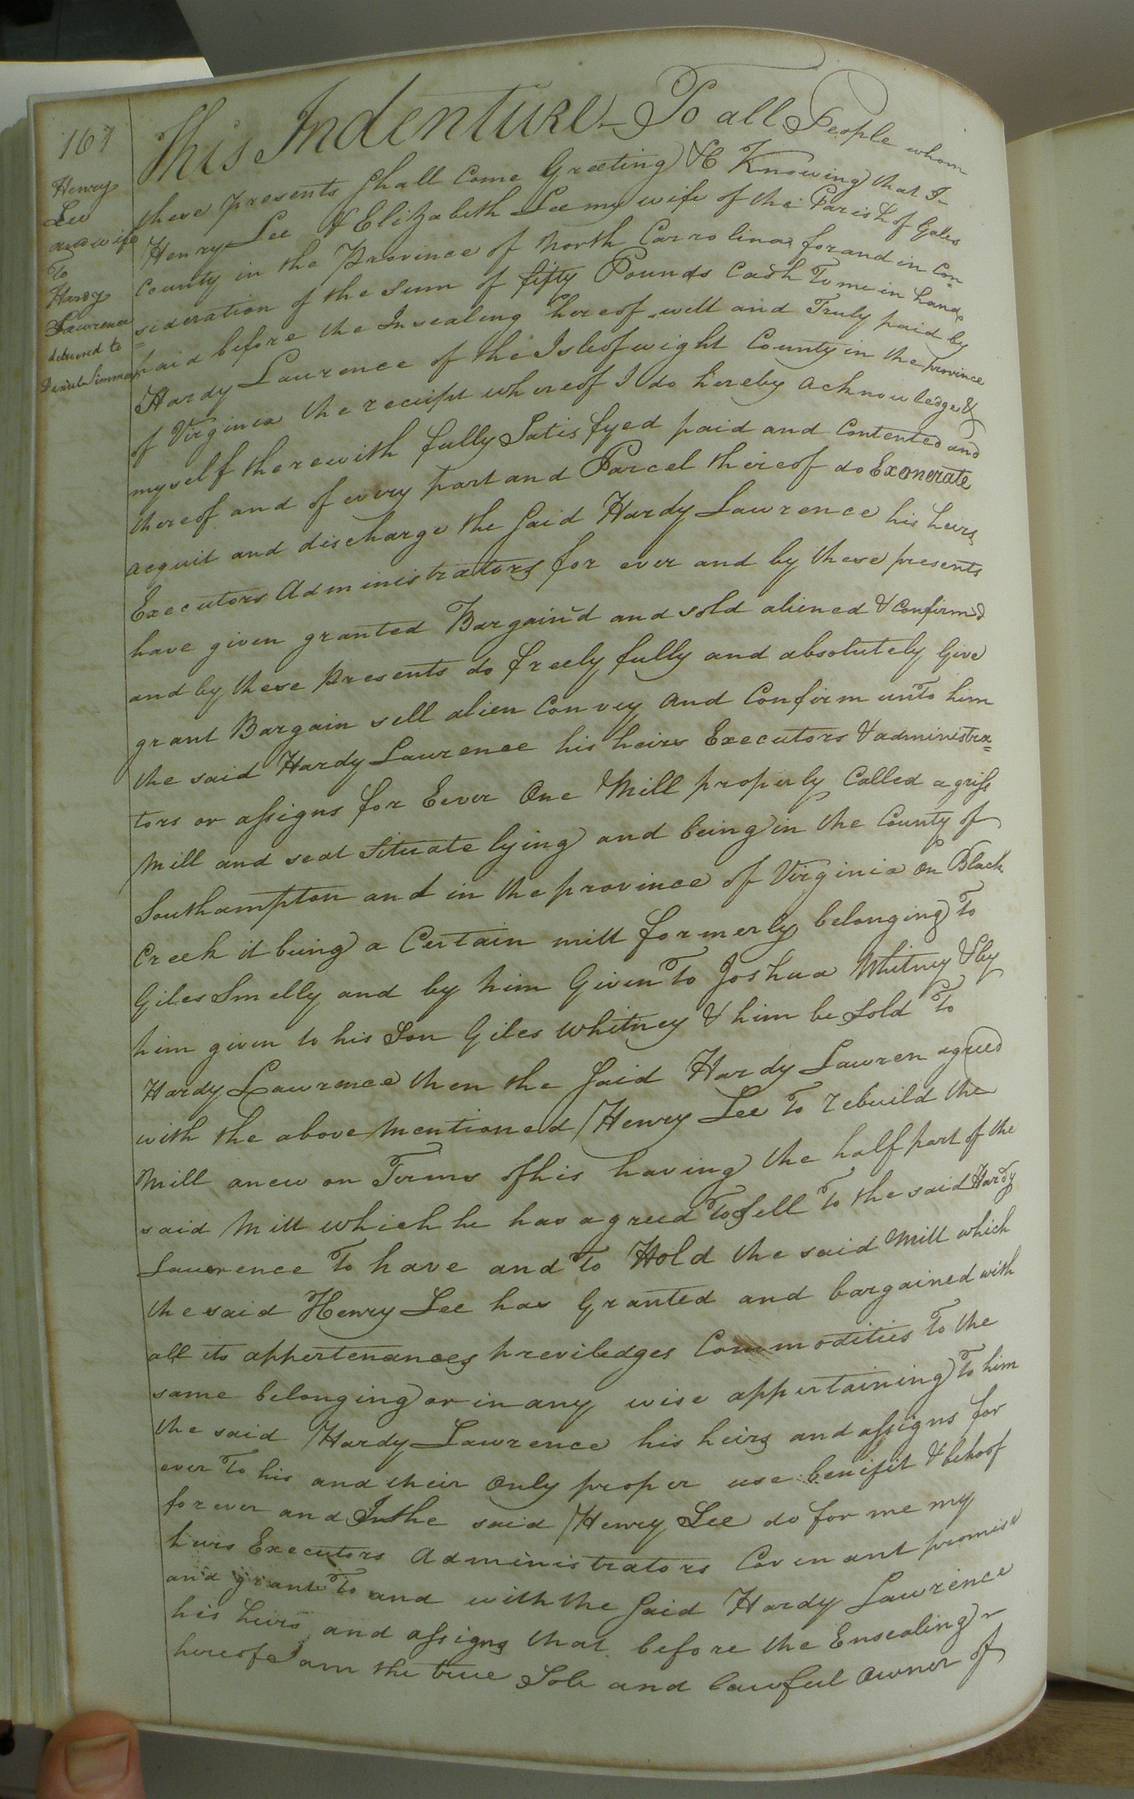 167
Henry
Lee
and wife
To
Hardy
Lawrence
delivered to
This Indenture To all People whom
these presents shall Come Greeting &c Knowing that I
Henry Lee & Elizabeth Lee my wife of the Parish of Gates
County in the Province of North Carrolina for and in Con-
sideration of the Sum of fifty Pounds Cash To me in hand
paid before the Insealing hereof well and Truly paid by
Hardy Lawrence of the Isleofwight County in the province
of Virginia the receipt whereof I do hereby acknowledge &
myself therewith fully Satisfyed paid and Contented and
thereof and of every part and Parcel thereof do Exonerate
acquit and discharge the Said Hardy Lawrence his heirs
Executors Administrators for ever and by these presents
have given granted Bargain'd and sold aliened & Confirmd
and by these presents do freely fully and absolutely Give
grant Bargain sell alien Convey and Confirm unto him
the said Hardy Lawrence his heirs Executors & administra=
tors or assigns for Eever One Mill properly Called a griss
Mill and seat Situate lying and being in the County of
Southampton and in the province of Virginia on Black
Creek it being a Certain mill formerly belonging To
Giles Smelly and by him Given To Joshua Whitney & by
him given to his Son Giles Whitney & him be Sold To
Hardy Lawrence then the Said Hardy Lawren agreed
with the above Mentioned Henry Lee To rebuild the
Mill anew on Terms of his having the half part of the
said Mill which he has agreed To Sell To the said Hardy
Lawrence To have and To Hold the said Mill which
the said Henry Lee has Granted and bargained with
all its appertenances previledges Commodities To the
same belonging or in any wise appertaining To him
the said Hardy Lawrence his heirs and assigns for
ever To his and their Only proper use benifit & behoof
forever and I the said Henry Lee do for me my
heirs Executors Administrators Covenant promise
and grant To and with the Said Hardy Lawrence
his heirs and assigns that before the Ensealing
hereof I am the true Sole and Lawful Owner of